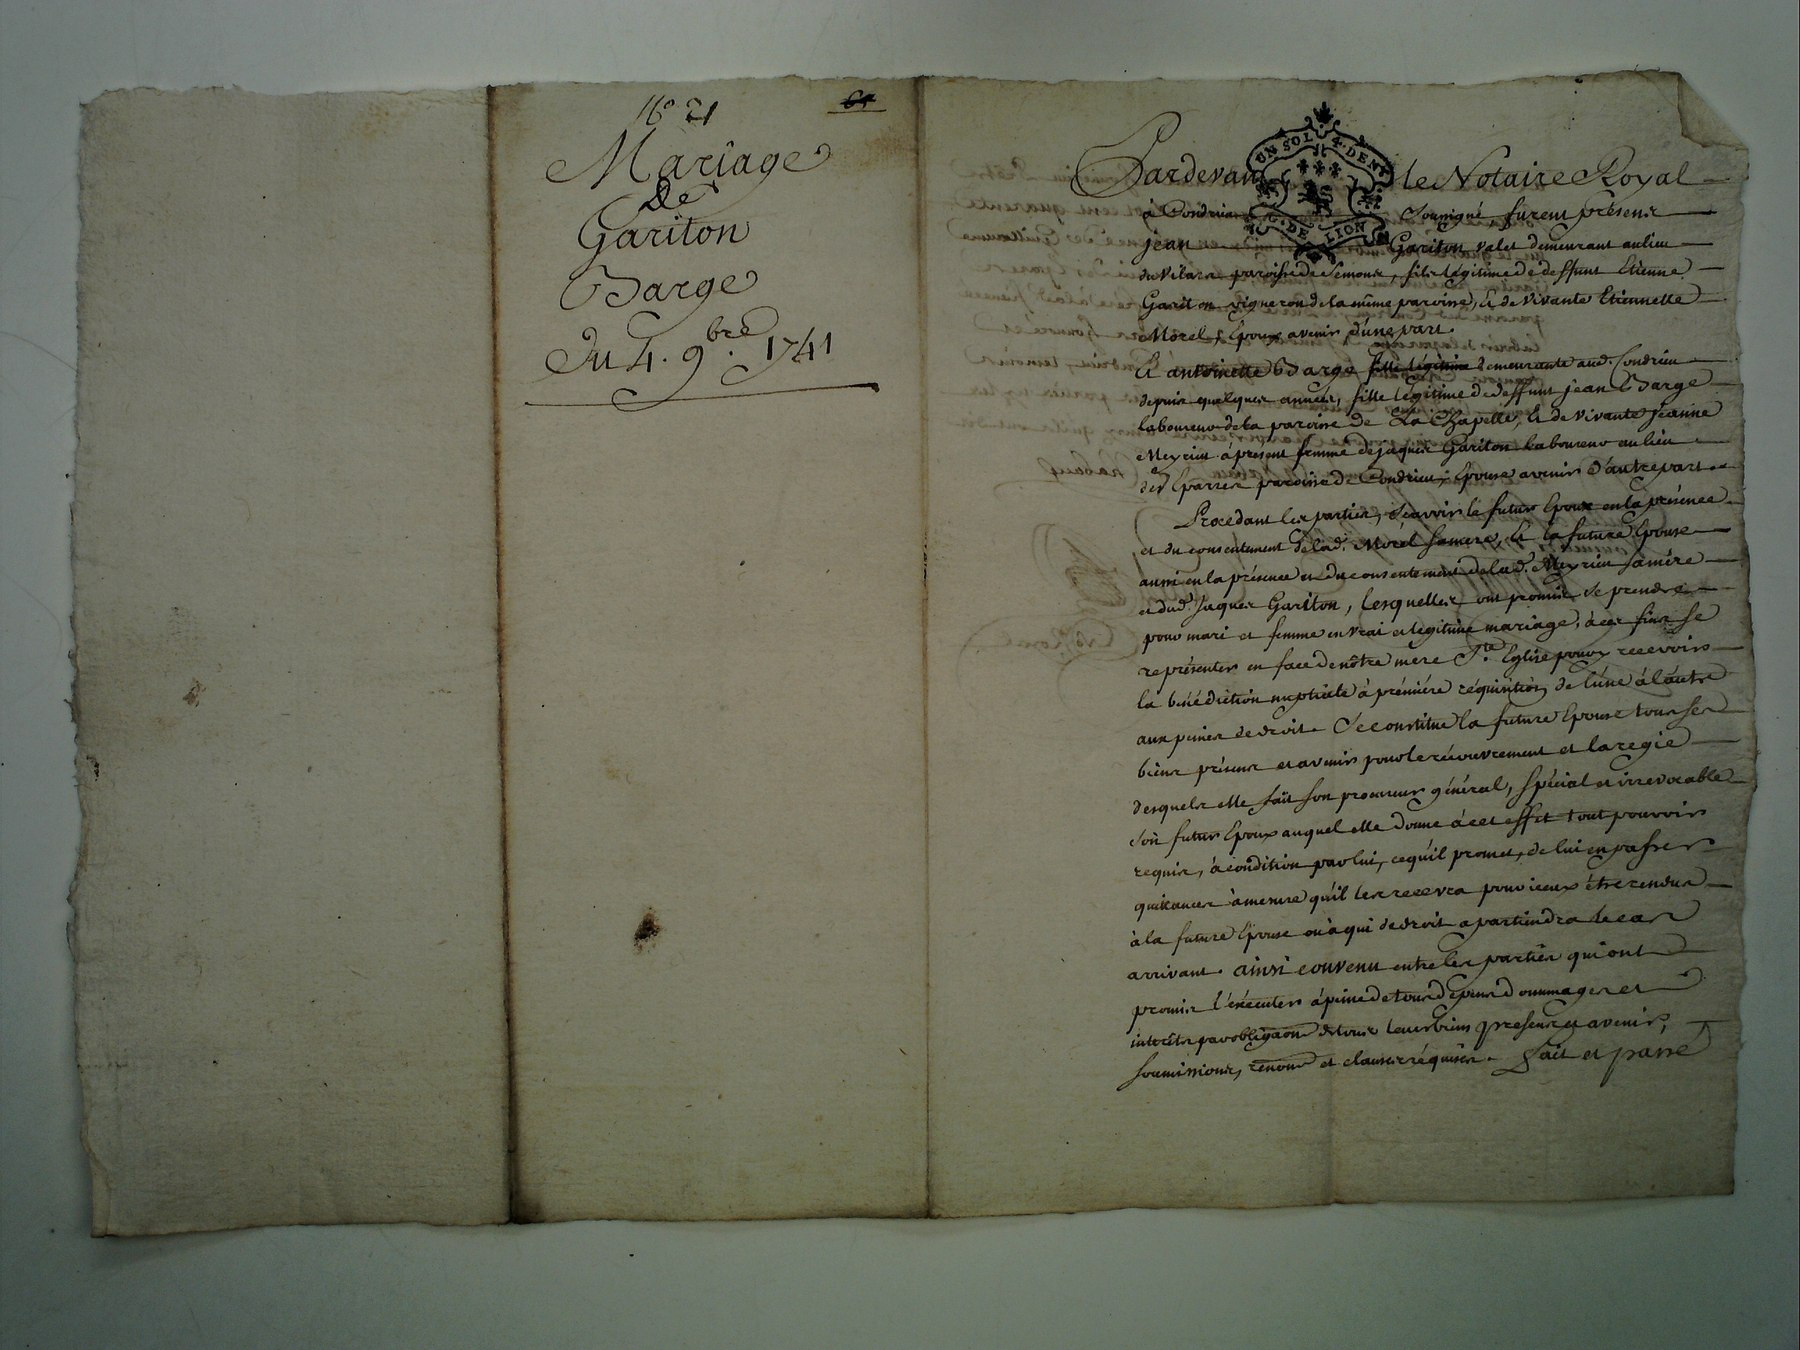 N° 21
Mariage
De
Gariton
Barge
Du 4. 9.bre 1741
UN SOL 4. DEN
G. DE LION
Pardevant le Notaire Royal
à Condrieu soussigné furent présens
jean Gariton valet demeurant au lieu
du Vilars paroisse de Semons, fils légitime de deffunt Etienne
Gariton vigneron de la même paroisse, & de vivante Etiennette
Morel, Epoux avenir d'une part.
Et antoinette Barge fille légitime demeurante aud. Condrieu
depuis quelques années, fille légitime de deffunt jean Barge
laboureur de la paroisse de La Chapelle, & de vivante jeanne
Meyrieu àprésent femme de jaques Gariton laboureur au lieu
des Eparres paroisse de Condrieu, Epouse avenir d'autre part
Procedant les parties, sçavoir le futur Epoux en la présence
et du consentement de lad. Morel sa mere, & la future Epouse
aussi en la présence et du consentement de lad. Meyrieu sa mére
et dud. jaques Gariton, lesquelles ont promis se prendre
pour mari et femme en vrai et légitime mariage, à ces fins se
représenter en face de nôtre mere Ste. Eglise pour y recevoir
la bénédiction nuptiale à prémiére réquisition de l'une à l'autre
aux peines de droit. Se constitue la future Epouse tous ses
biens présens et avenir pour le récouvrement et la regie
desquels elle fait son procureur général, spécial et irrevocable
son futur Epoux auquel elle donne à cet effet tout pouvoir
requis, à condition par lui, ce qu'il promet, de lui en passer
quitances à mesure qu'il les recevra pour iceux être rendus
à la future Epouse ou à qui de droit apartiendra le cas
arrivant. ainsi convenu entre les parties qui ont
promis l'exécuter à peine de tous dépens dommages et
intérêts par obligaon de tous leurs biens présens et avenir,
soumissions, renons et clauses réquises. Fait et passé